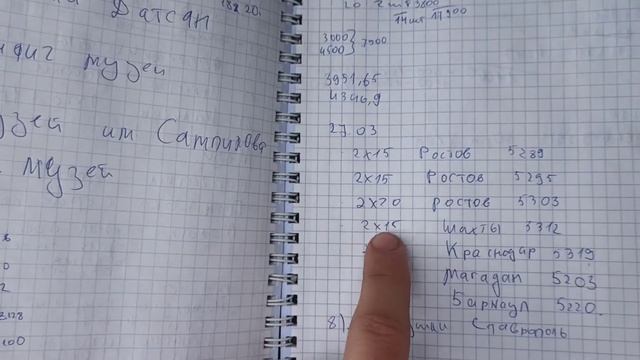 Датсан 18х20
музей
музей им Сампилова
музей
3128
100
3000
4500 } 7500
3951,65
4346,9
27.03
2х15 Ростов 5289
2х15 Ростов 5295
2х20 Ростов 5303
2х15 Шахты 5312
Краснодар 5319
Магадан 5203
Барнаул 5220.
8) Ставрополь